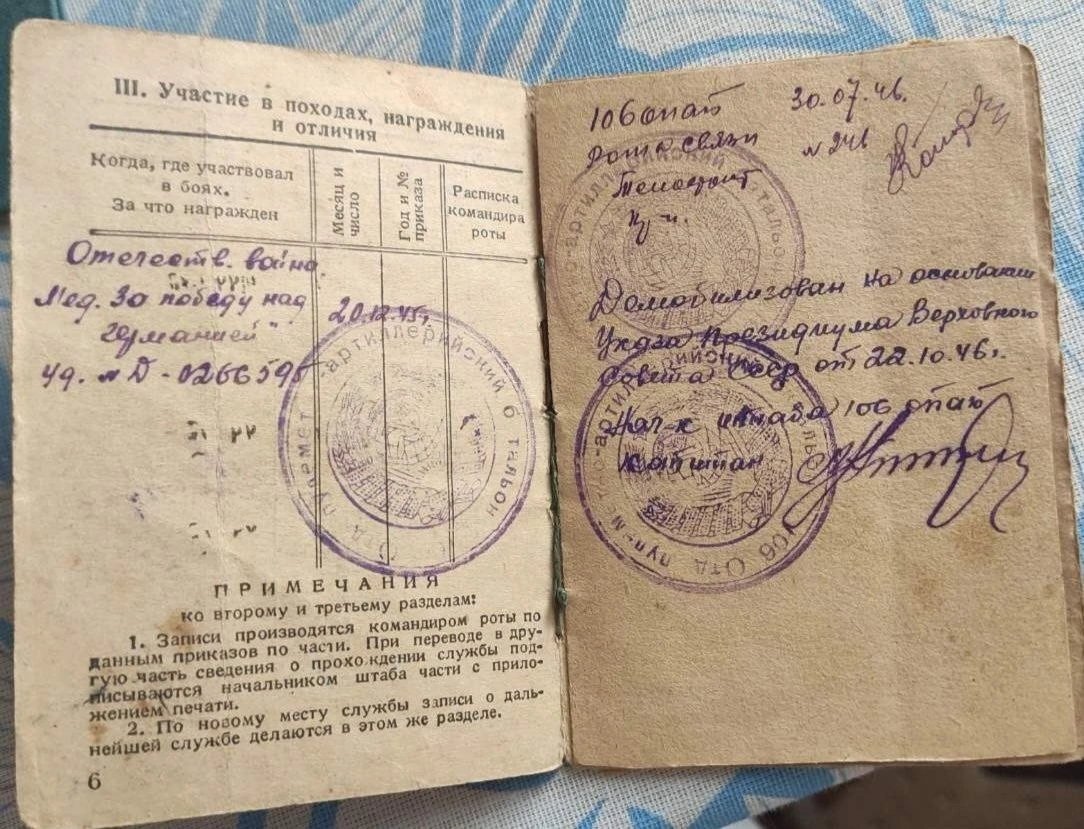 III. Участие в походах, награждения
и отличия
Когда, где участвовал
в боях.
За что награжден
Месяц и
число
Год и №
приказа
Расписка
командира
роты
Отечеств. война
Мед. За победу над
Германией"
20.12.45г
уд. № Д-0266595
-артиллерийский б тальон
Отд пулемет
ПРИМЕЧАНИЯ
ко второму и третьему разделам:
1. Записи производятся командиром роты по
данным приказов по части. При переводе в дру-
гую часть сведения о прохождении службы под-
писываются начальником штаба части с прило-
жением печати.
2. По новому месту службы записи о даль-
нейшей службе делаются в этом же разделе.
6
106 опаб 30.07.46.
Рота связи № 246
Телефонист
Демобилизован на основании
Указа Президиума Верховного
Совета СССР от 22.10.46г.
Нач-к штаба 106 опаб
капитан
106 Отд